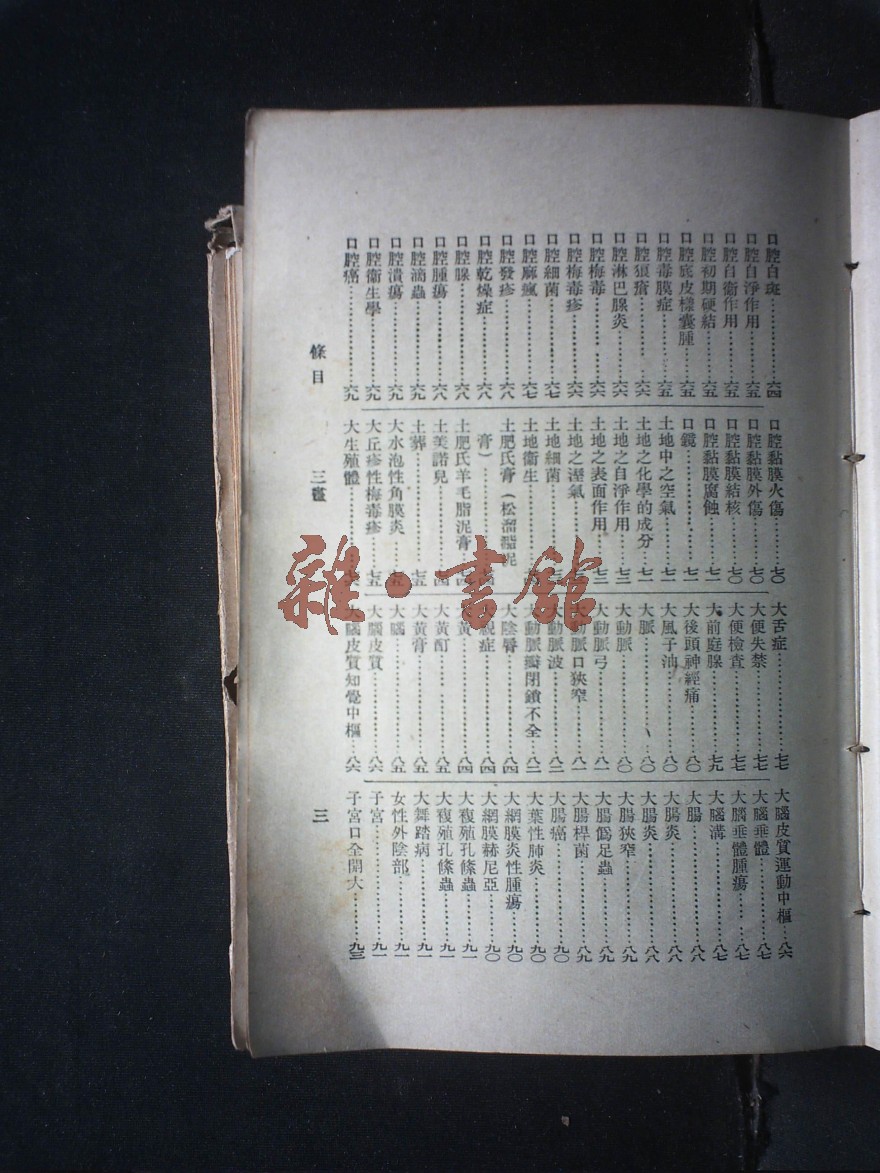 口腔白斑……六四
口腔自淨作用……六五
口腔自衛作用……六五
口腔初期硬結……六五
口腔底皮樣囊腫……六五
口腔毒膜症……六五
口腔狼瘡……六六
口腔淋巴腺炎……六六
口腔梅毒……六六
口腔梅毒疹……六六
口腔細菌……六七
口腔麻瘋……六七
口腔發疹……六八
口腔乾燥症……六八
口腔腺……六八
口腔腫瘍……六八
口腔滴蟲……六九
口腔潰瘍……六九
口腔衞生學……六九
口腔癌……六九
口腔黏膜火傷……七〇
口腔黏膜外傷……七〇
口腔黏膜結核……七〇
口腔黏膜腐蝕……七一
口鏡……七一
土地中之空氣……七一
土地之化學的成分……七一
土地之自淨作用……七三
土地之表面作用……七三
土地之溼氣……
土地細菌……
土地衞生……
土肥氏膏（松溜
膏）……
土肥氏羊毛脂泥膏……
土美諾兒……七四
土葬……七五
大水泡性角膜炎……七五
大丘疹性梅毒疹……七五
大生殖體……七六
大舌症……七七
大便失禁……七七
大便檢查……七七
大前庭腺……七九
大後頭神經痛……八〇
大風子油……八〇
大脈……八〇
大動脈……八〇
大動脈弓……八一
大動脈口狹窄……八一
大動脈波……八二
大動脈瓣閉鎖不全……八二
大陰脣……八四
大視症……八四
大黃……八四
大黃酊……八五
大黃膏……八五
大腦……八五
大腦皮質……八六
大腦皮質知覺中樞……八六
大腦皮質運動中樞……八六
大腦垂體……八七
大腦垂體腫瘍……八七
大腦溝……八七
大腸……八八
大腸炎……八八
大腸炎……八八
大腸狹窄……八九
大腸僞足蟲……八九
大腸桿菌……八九
大腸癌……九〇
大葉性肺炎……九〇
大網膜炎性腫瘍……九〇
大網膜赫尼亞……九〇
大複殖孔絛蟲……九一
大複殖孔絛蟲……九一
大舞踏病……九一
女性外陰部……九一
子宮……九一
子宮口全開大……九三
條目 三畫 三
雜·書館